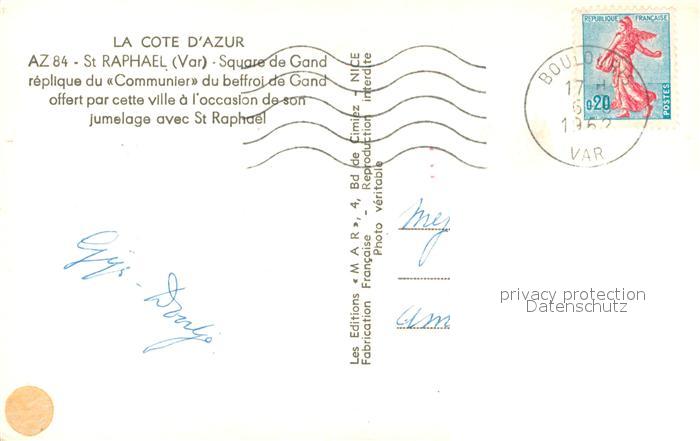 LA COTE D'AZUR
AZ 84 - St RAPHAEL (Var) - Square de Gand
réplique du «Communier» du beffroi de Gand
offert par cette ville à l'occasion de son
jumelage avec St Raphael
Les Editions «MAR», 4, Bd de Cimiez - NICE
Fabrication Française - Reproduction interdite
Photo véritable
REPUBLIQUE FRANÇAISE
0,20
POSTES
BOULOURIS
17 H
VAR
privacy protection
Datenschutz